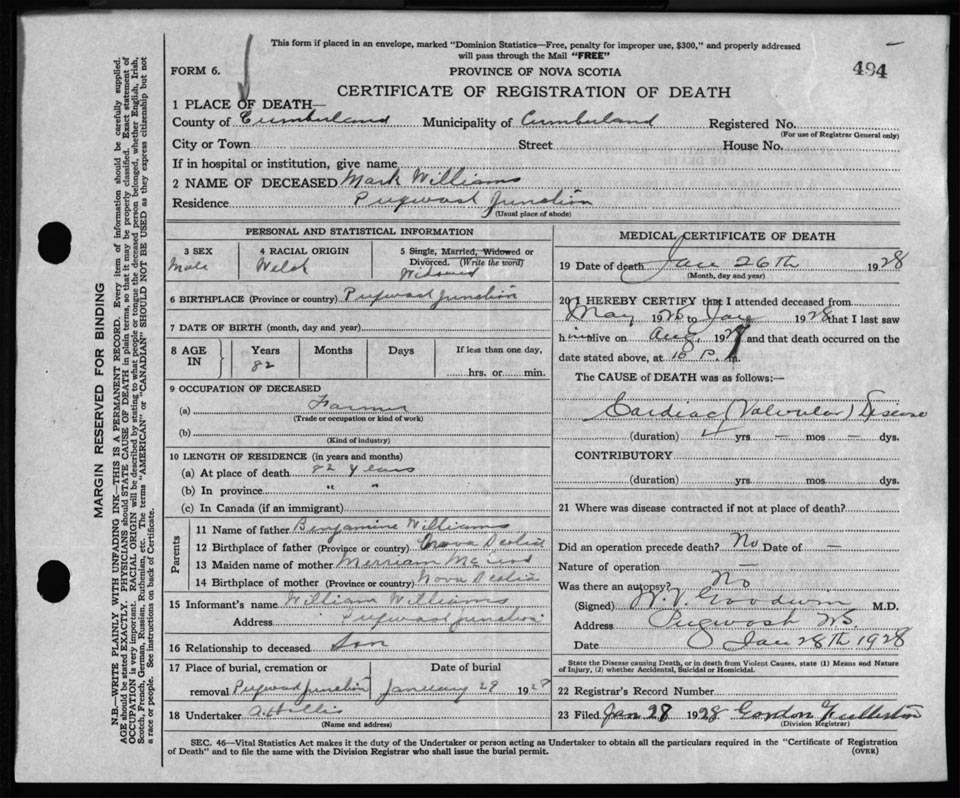 This form if placed in an envelope, marked "Dominion Statistics—Free, penalty for improper use, $300," and properly addressed
will pass through the Mail "FREE"
494
FORM 6.
PROVINCE OF NOVA SCOTIA
CERTIFICATE OF REGISTRATION OF DEATH
1 PLACE OF DEATH—
County of Cumberland Municipality of Cumberland Registered No.
(For use of Registrar General only)
City or Town Street House No.
If in hospital or institution, give name
2 NAME OF DECEASED Mark Williams
Residence Pugwash Junction
(Usual place of abode)
PERSONAL AND STATISTICAL INFORMATION
3 SEX 4 RACIAL ORIGIN 5 Single, Married, Widowed or
Divorced. (Write the word)
Male Welsh Widowed
6 BIRTHPLACE (Province or country) Pugwash Junction
7 DATE OF BIRTH (month, day and year)
8 AGE IN Years Months Days If less than one day,
82 hrs. or min.
9 OCCUPATION OF DECEASED
(a) Farmer
(Trade or occupation or kind of work)
(b)
(Kind of industry)
10 LENGTH OF RESIDENCE (in years and months)
(a) At place of death 82 years
(b) In province " "
(c) In Canada (if an immigrant)
Parents
11 Name of father Benjamine Williams
12 Birthplace of father (Province or country) Nova Scotia
13 Maiden name of mother Merriam
14 Birthplace of mother (Province or country) Nova Scotia
15 Informant's name William Williams
Address Pugwash Junction
16 Relationship to deceased Son
17 Place of burial, cremation or Date of burial
removal Pugwash Junction January 29 1928
18 Undertaker A. Hillis
(Name and address)
MEDICAL CERTIFICATE OF DEATH
19 Date of death Jan 26th 1928
(Month, day and year)
20 I HEREBY CERTIFY that I attended deceased from
May 192 to Jan 1928 that I last saw
him alive on Aug. 1927 and that death occurred on the
date stated above, at 10 P. m.
The CAUSE of DEATH was as follows:—
Cardiac (Valvular) Disease
(duration) 4 yrs. — mos — dys.
CONTRIBUTORY
(duration) yrs. mos. dys.
21 Where was disease contracted if not at place of death?
Did an operation precede death? No Date of —
Nature of operation —
Was there an autopsy? No
(Signed) W. V. Goodwin M.D.
Address Pugwash N.S.
Date Jan 28th 1928
State the Disease causing Death, or in death from Violent Causes, state (1) Means and Nature
of Injury, (2) whether Accidental, Suicidal or Homicidal.
22 Registrar's Record Number
23 Filed Jan 28 1928 Gordon
(Division Registrar)
SEC. 46—Vital Statistics Act makes it the duty of the Undertaker or person acting as Undertaker to obtain all the particulars required in the "Certificate of Registration
of Death" and to file the same with the Division Registrar who shall issue the burial permit.
(OVER)
MARGIN RESERVED FOR BINDING
N.B.—WRITE PLAINLY WITH UNFADING INK—THIS IS A PERMANENT RECORD. Every item of information should be carefully supplied.
AGE should be stated EXACTLY. PHYSICIANS should STATE CAUSE OF DEATH in plain terms, so that it may be properly classified. Exact statement of
OCCUPATION is very important. RACIAL ORIGIN will be described by stating to what people or tongue the deceased person belonged, whether English, Irish,
Scotch, French, German, Russian, Ruthenian, etc. The terms "AMERICAN" or "CANADIAN" SHOULD NOT BE USED as they express citizenship but not
a race or people. See instructions on back of Certificate.